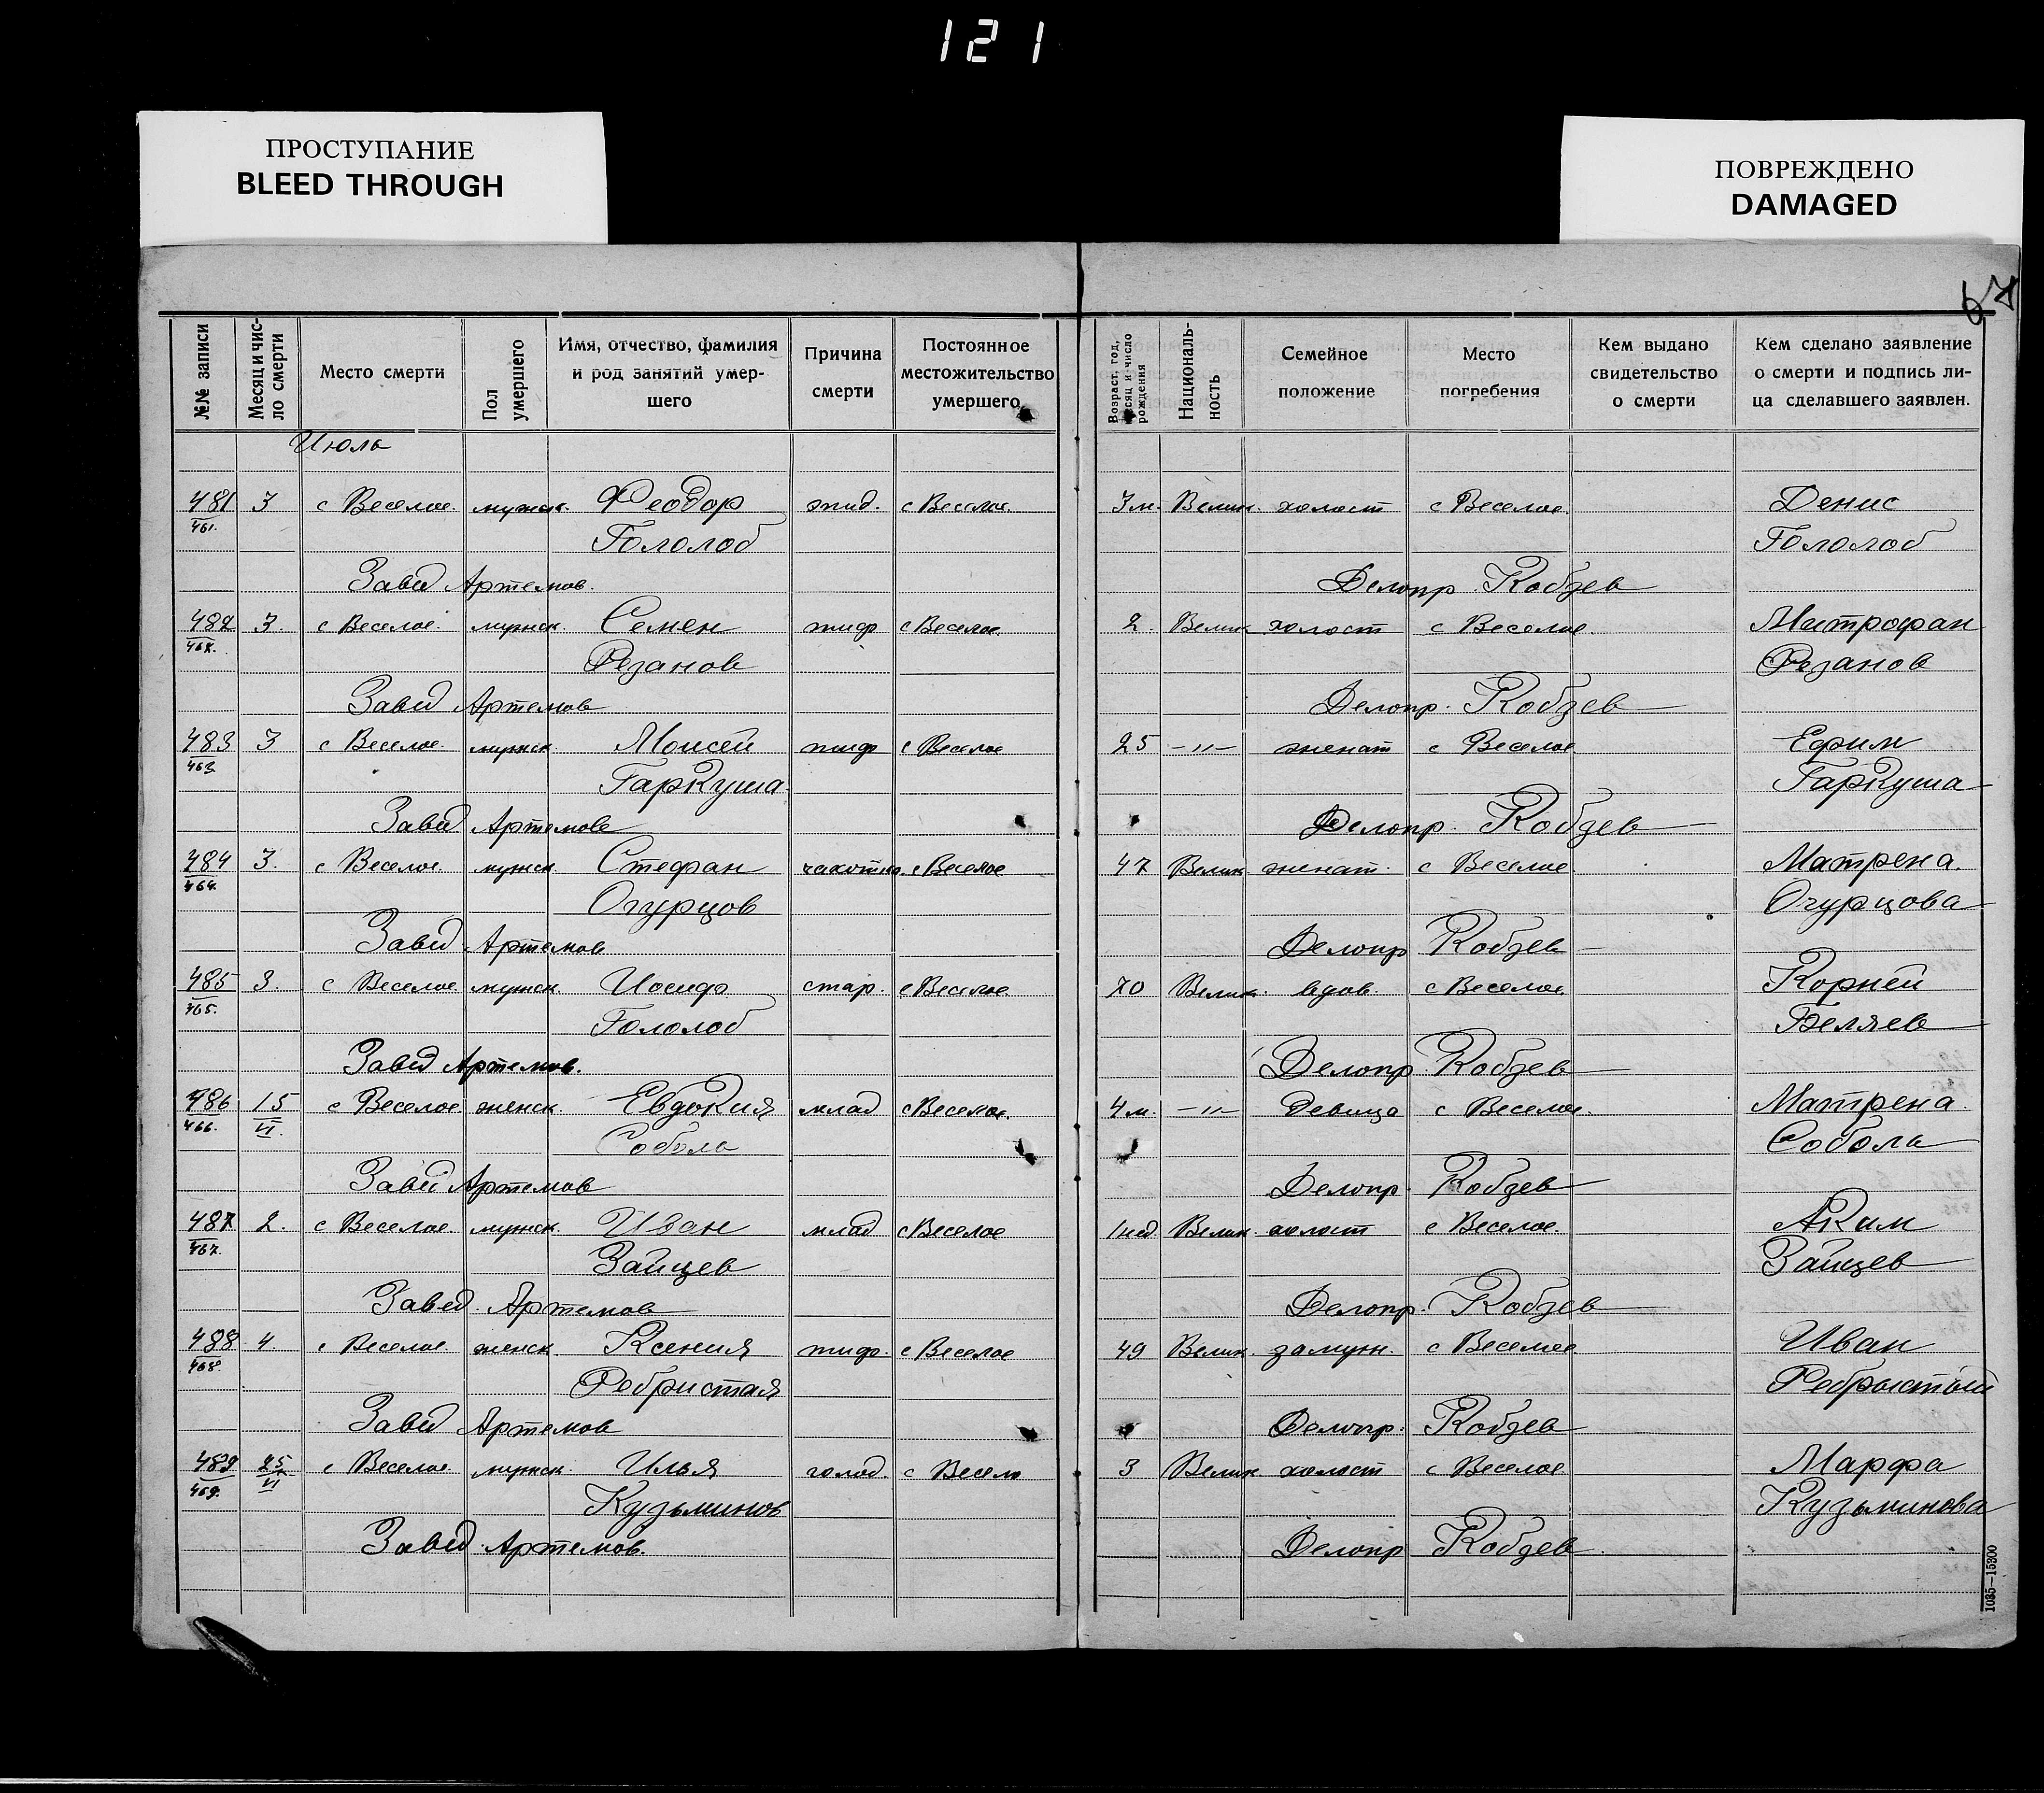 121
ПРОСТУПАНИЕ
BLEED THROUGH
ПОВРЕЖДЕНО
DAMAGED
67
№№ записи
Месяц и чис-
ло смерти
Место смерти
Пол
умершего
Имя, отчество, фамилия
и род занятий умер-
шего
Причина
смерти
Постоянное
местожительство
умершего
Возраст, год,
месяц и число
рождения
Националь-
ность
Семейное
положение
Место
погребения
Кем выдано
свидетельство
о смерти
Кем сделано заявление
о смерти и подпись ли-
ца сделавшего заявлен.
Июль
481 3 с Веселое мужск. Феодор с Веселое. 3 м. Велик. холост с Веселое. Денис
461. Гололоб Гололоб
Завед Артемов. Делопр. Кобзев
482 3. с Веселое. мужск. Семен тиф с Веселое. 2. Велик. холост с Веселое. Митрофан
462. Резанов Резанов
Завед Артемов Делопр. Кобзев
483 3 с Веселое. мужск. Моисей тиф с Веселое 25 -"- женат с Веселое Ефим
463 Гаркуша Гаркуша
Завед Артемов Делопр. Кобзев
484 3. с Веселое. мужск. Стефан чахотка с Веселое 47 Велик женат. с Веселое Матрена.
464. Огурцов Огурцова
Завед. Артемов Делопр Кобзев
485 3. с Веселое мужск. Иосиф стар. с Веселое 70 Велик. вдов. с Веселое Корней
465. Гололоб Беляев
Завед Артемов. Делопр Кобзев
486 15 с Веселое женск. Евдокия млад с Веселое. 4 м. -"- девица с Веселое. Матрена.
466. VI. Соболь Собола
Завед Артемов Делопр. Кобзев
487 2. с Веселое. мужск. Иван млад с Веселое 1 нед Велик. холост с Веселое. Аким
467. Зайцев Зайцев
Завед. Артемов Делопр. Кобзев
488 4. с Веселое женск. Ксения тиф. с Веселое 49 Велик. замуж. с Веселое Иван
468. Ребристая Ребрыстый
Завед Артемов Делопр. Кобзев
489 25 с Веселое. мужск. Илья голод. с Весело 3 Велик. холост с Веселое Марфа
469. VI Кузьминов Кузьминова
Завед. Артемов. Делопр Кобзев.
1035—15300